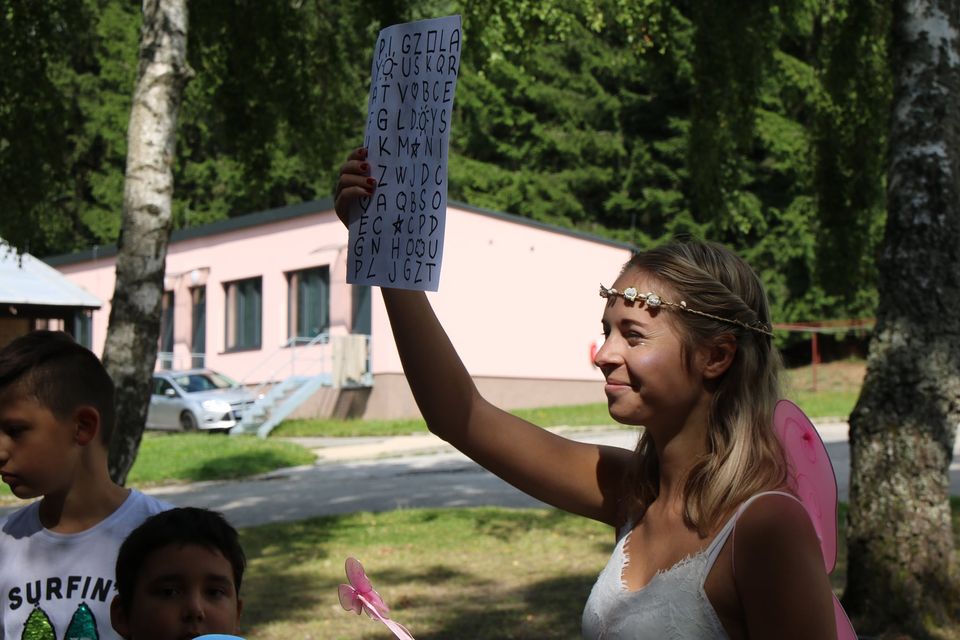 P I G Z □ L A
Y ☼ U S K Q R
A T V ♡ B C E
F G L D ☼ Y S
K M ★ N I
Z W J D C
♡ A Q B S O
E C ★ C P D
G N H O ☼ U
P Z J G Z T
SURFIN'